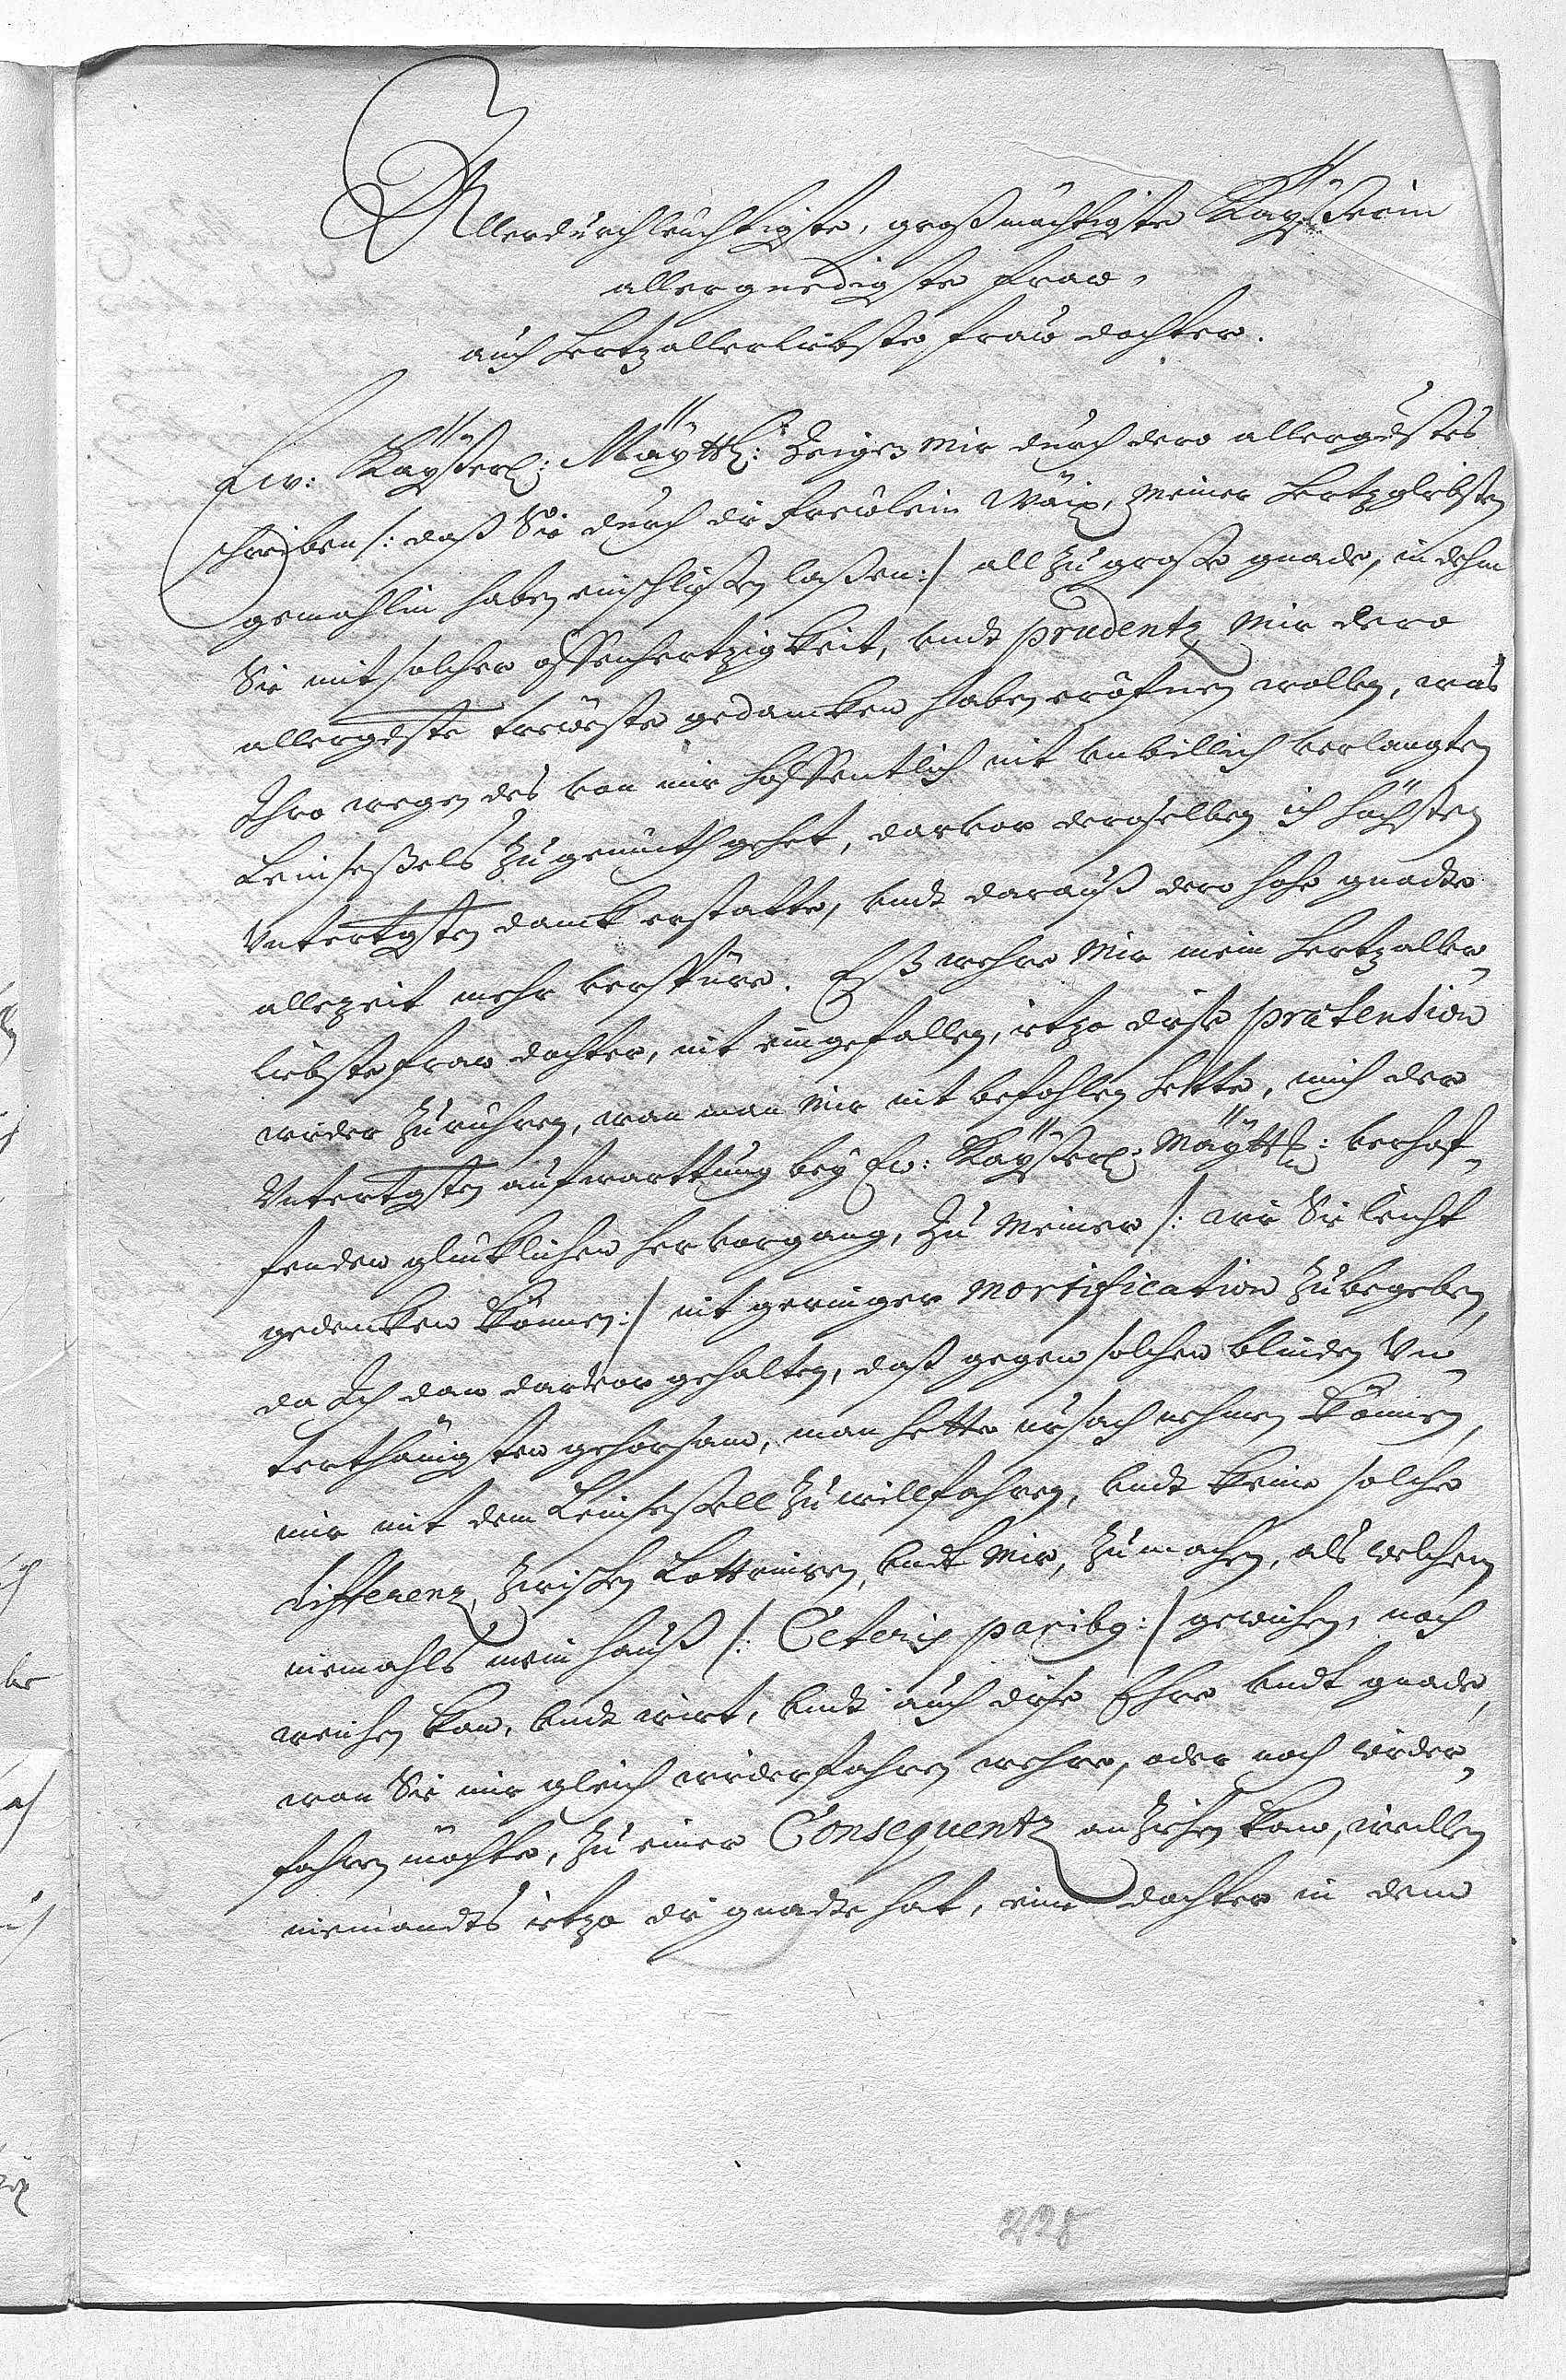 Allerdurchleuchtigste, großmächtigste Kayßerin
allergnedigste fraw,
auch hertzallerliebste fraw dochter.
Ew: Kayßerl: Mäytt: Zeigen mir durch dero allergdstes
schreiben /: daß Sie durch die frewlein meiner hertzgliebsten
gemahlin haben einschlißen laßen :/ all zu große gnade, in dehm
Sie mit solcher offenhertzigkeit, undt prudentz mir dero
allergdste trewste gedancken haben eröfnen wollen, was
Ihro wegen des von mir hoffentlich nit unbillich verlangten
Leinseßels zu gemüth gehet, darvor deroselben ich höchsten
Untertgsten danck erstatte, undt darauß dero hohe gnade
allezeit mehr verspüre. Eß wehre mir mein hertzaller-
liebste fraw dochter, nit eingefallen, itzo diese prætension
wieder zu rühren, wan man mir nit befohlen hette, mich der
Untertgsten aufwarttung bey Ew: Kayßerl: Mäytt: verhof-
fenden glücklichen hervorgang, zu meiner /: wie Sie leicht
gedencken können :/ nit geringer mortification zu begeben,
da Ich dan darvor gehalten, daß gegen solchen blinden Un-
terthänigsten gehorsam, man hette ursach nehmen können,
mir mit dem Leinseßell zu willfahren, undt keine solche
differenz, zwischen Lottringen, undt mir, zu machen, als welchem
niemahls mein hauß /: Ceteris paribg :/ gewichen, noch
weichen kan, undt wirt, undt auch diese Ehre undt gnade,
wan Sie mir gleich wiederfahren wehre, oder noch wieder-
fahren möchte, zu einer Consequentz anziehen kan, weillen
niemandts itzo die gnade hat, eine dochter in dem
228